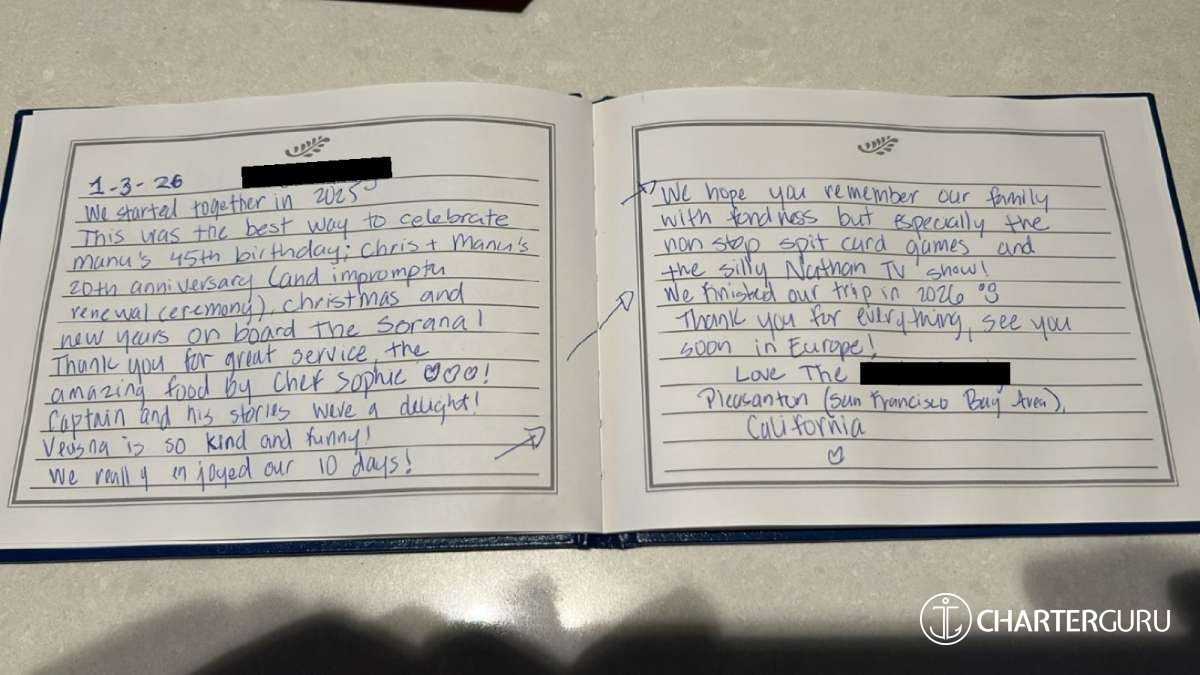 1-3-26
We started together in 2025
This was the best way to celebrate
Manu's 45th birthday; Chris + Manu's
20th anniversary (and impromptu
renewal ceremony), Christmas and
new years on board the Sorana!
Thank you for great service, the
amazing food by Chef Sophie ♡♡♡!
Captain and his stories were a delight!
Veasna is so kind and funny!
We really enjoyed our 10 days!
We hope you remember our family
with fondness but especially the
non stop spit card games and
the silly Nathan TV show!
We finished our trip in 2026
Thank you for everything, see you
soon in Europe!
Love The
Pleasanton (San Francisco Bay Area),
California
♡
CHARTERGURU